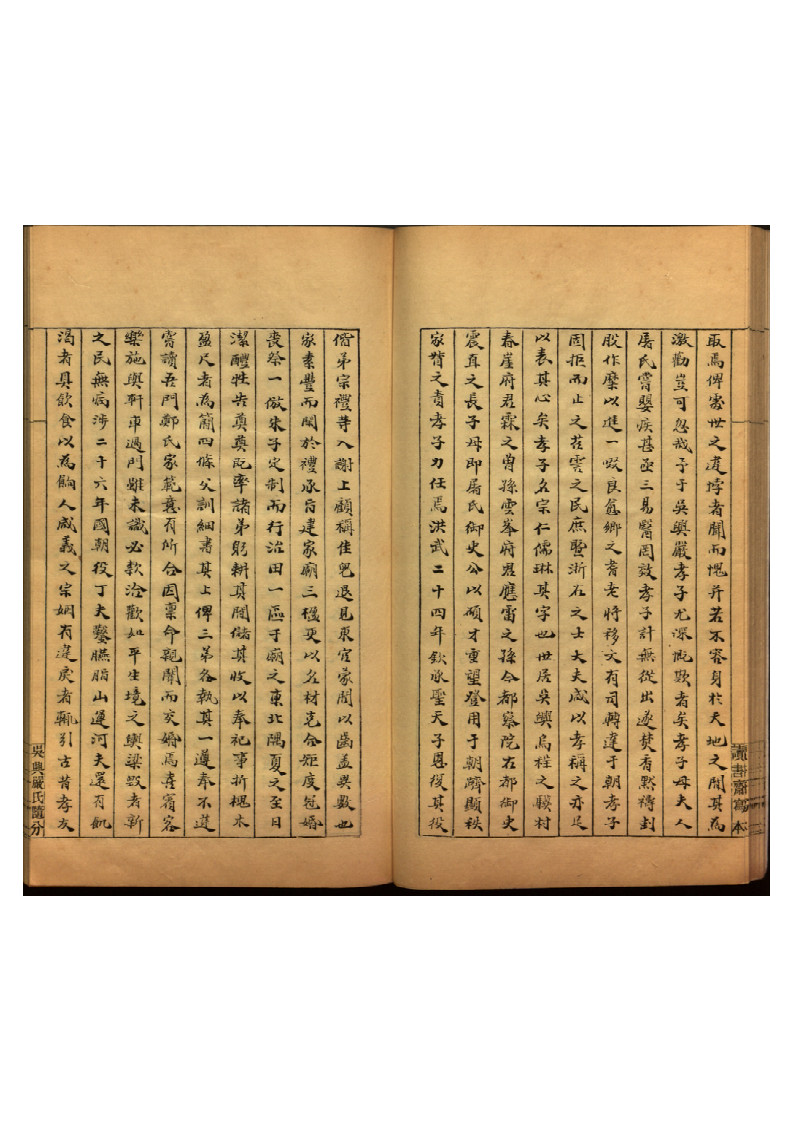 取焉俾處世之違悖者聞而愧并若不容身於天地之間其為
激勸豈可忽哉予于吳興嚴孝子尤深慨歎者矣孝子母夫人
屠氏嘗嬰疾甚亟三易醫罔效孝子計無從出遂焚香默禱刲
股作糜以進一啜良愈鄉之耆老將移文有司轉達于朝孝子
固拒而止之苕雲之民庶暨浙右之士大夫咸以孝稱之亦足
以表其心矣孝子名宗仁儒珠其字也世居吳興烏程之驥村
春崖府君霖之曾孫雲峯府君應雷之孫今都察院右都御史
震直之長子母即屠氏御史公以碩才重望登用于朝躋顯秩
家督之責孝子力任焉洪武二十四年欽承聖天子恩復其役
偕弟宗禮等入謝上顧稱佳兒退見東宮蒙閱以齒并與數也
家素豐而閑於禮承旨建家廟三楹更以名材克合矩度冠婚
喪祭一倣朱子定制而行治田一區于廟之東北隅夏之至日
潔醴牲告奠奠既率諸弟躬耕其間儲其收以奉祀事折槐木
盈尺者為簡四條父訓細書其上俾三弟各執其一遵奉不違
嘗讀吾門鄭氏家範意有所合因稟命親闈而交婚焉喜賓客
樂施與軒車過門雖未識必款洽歡如平生境之輿梁毀者新
之民無病涉二十六年國朝役丁夫鑿臙脂山運河夫還有飢
渴者具飲食以為餉人咸義之宗姻有違戾者輒引古昔孝友
讀書齋寫本
吳興嚴氏隨分